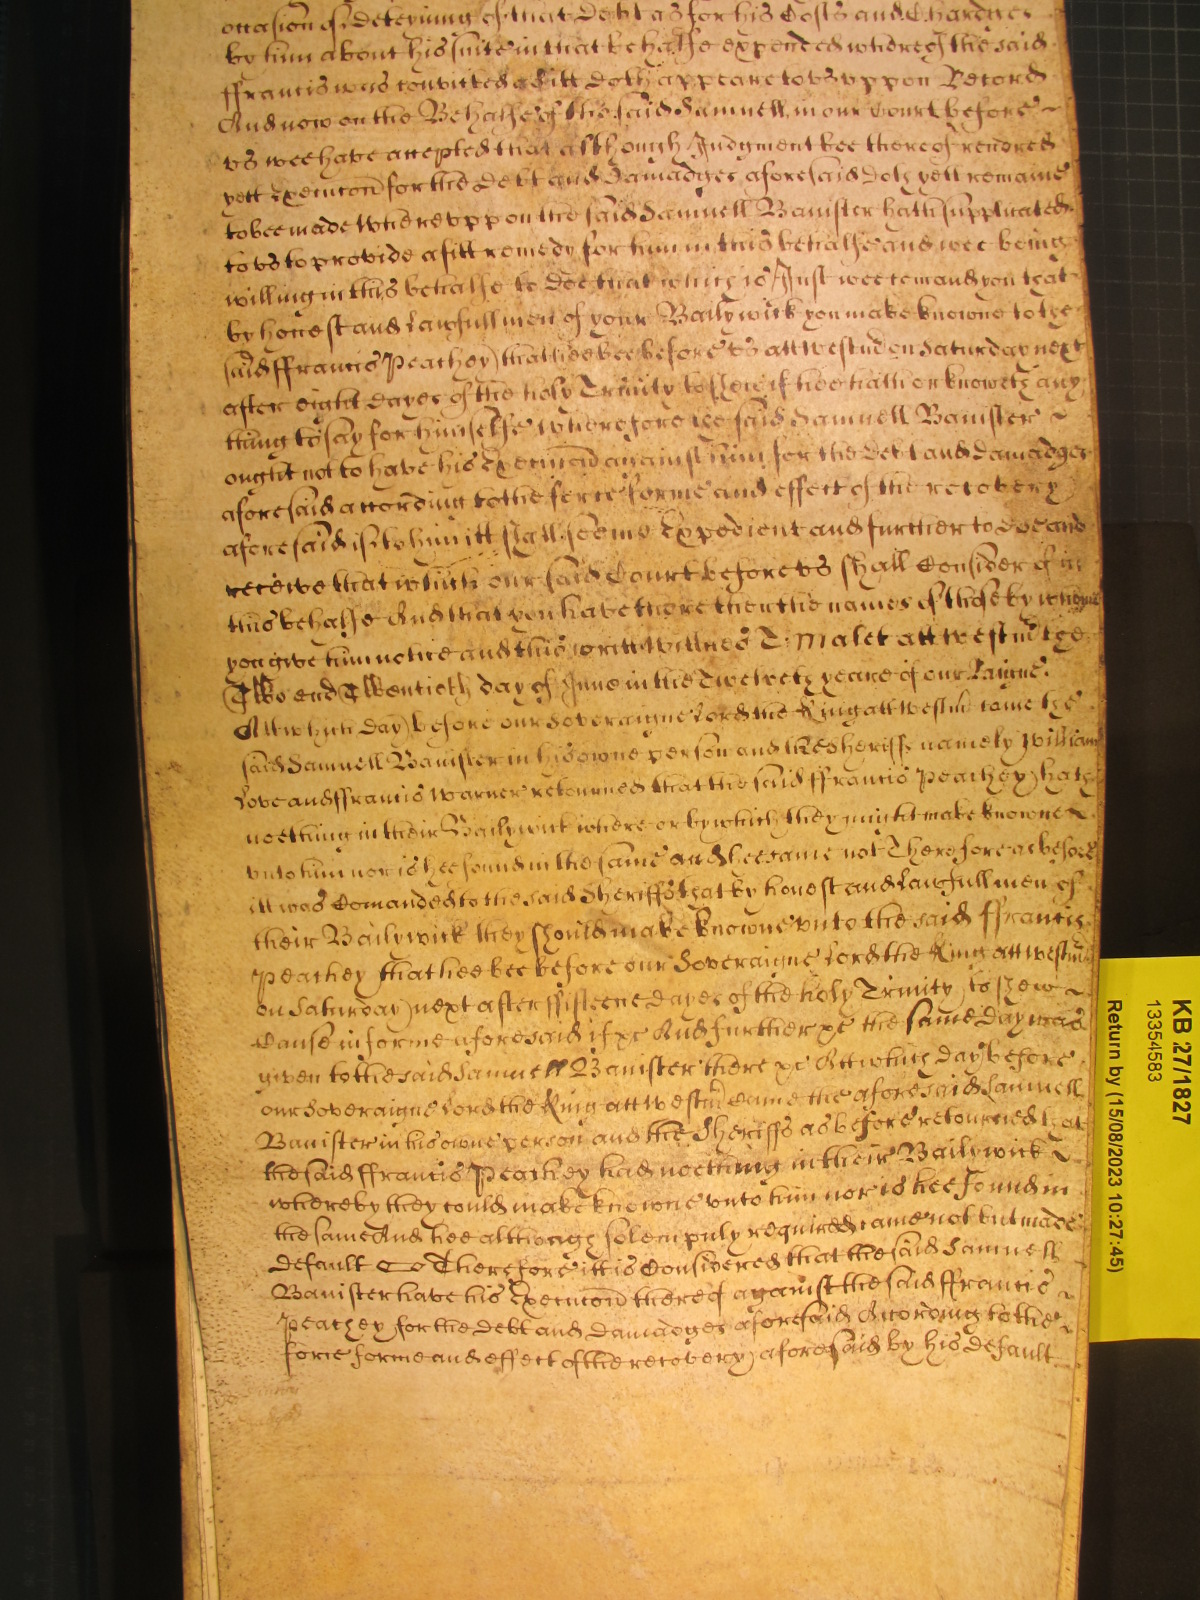 occasion of deteyning of that Debt as for his Costs and Chardges
by him about his suite in that behalfe expended whereof the said
ffrancis was convicted as itt doth appeare to vs vppon Record
And now on the Behalfe of the said Samuell in our Court before
vs wee have accepted that although Judgment bee thereof rendred
yett Execucon for the Debt and Damadges aforesaid doth yett remaine
to bee made Wherevppon the said Samuell Banister hath supplicated
to vs to provide a fitt remedy for him in this behalfe and wee being
willing in this behalfe to doe that which is Just wee comand you that
by honest and Lawfull men of your Bailywick you make knowne to the
said ffrancis Peachey that hee bee before vs att Westm on Saturday next
after eight dayes of the holy Trinity to shew if hee hath or knoweth any
thing to say for himselfe wherefore the said Samuell Banister
ought not to have his Execucon against him for the debt and damadges
aforesaid according to the force forme and effect of the recovery
aforesaid if to him itt shall seeme Expedient and further to doe and
receive that which our said Court before vs shall Consider of in
this behalfe And that you have there then the names of those by whome
you give him notice and this writt Wittnes T: Malet att Westm the
Two and Twentieth day of June in the Twelveth yeare of our Raigne.
Att which day before our Soveraigne Lord the King att Westm came the
said Samuell Banister in his owne person and the Sheriffs namely William
Love and ffrancis Warner retourned that the said ffrancis Peachey hath
noething in their Bailywick where or by which they might make knowne
vnto him nor is hee found in the same and hee came not Therefore as before
itt was Comanded to the said Sheriffs that by honest and Lawfull men of
their Bailywick they should make knowne vnto the said ffrancis
Peachey that hee bee before our Soveraigne Lord the King att Westm
on Saturday next after ffifteene dayes of the holy Trinity to shew
Cause in forme aforesaid if &c And further &c the same day was
given to the said Samuell Banister there &c Att which day before
our Soveraigne Lord the King att Westm Came the aforesaid Samuell
Banister in his owne person and the Sheriffs as before retourned that
the said ffrancis Peachey had noething in their Bailywick
whereby they could make knowne vnto him nor is hee found in
the same And hee although solempnly required came not but made
default Therefore itt is Considered that the said Samuell
Banister have his Execucon thereof against the said ffrancis
Peachey for the debt and damadges aforesaid According to the
force forme and effect of the recovery aforesaid by his default
KB 27/1827
13354583
Return by (15/08/2023 10:27:45)